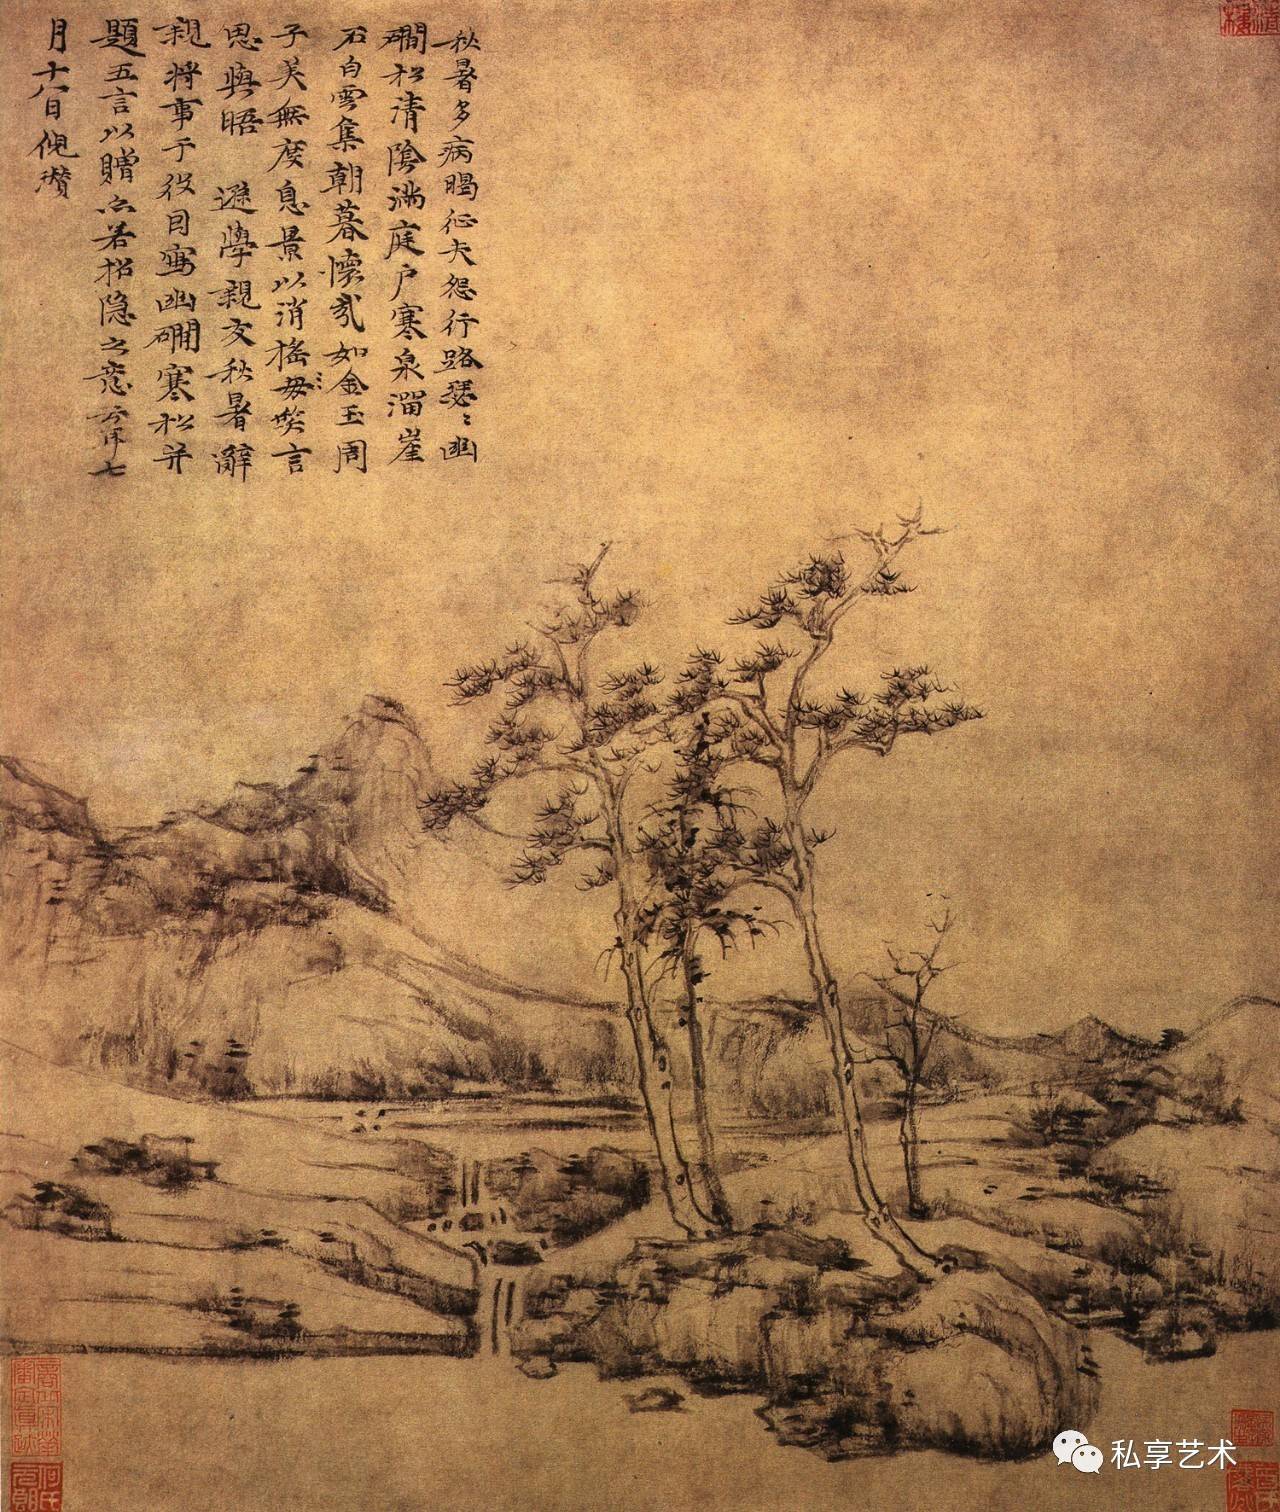 秋暑多病暍征夫怨行路瑟〻幽
磵松清陰滿庭户寒泉溜崖
石白雲集朝暮懷哉如金玉周
子美無度息景以消搖毋笑言
思與晤 遜學親友秋暑辭
親將事于役因寫幽磵寒松并
題五言以贈亦若招隐之意云耳七
月十八日倪瓚
何氏元朗
私享艺术